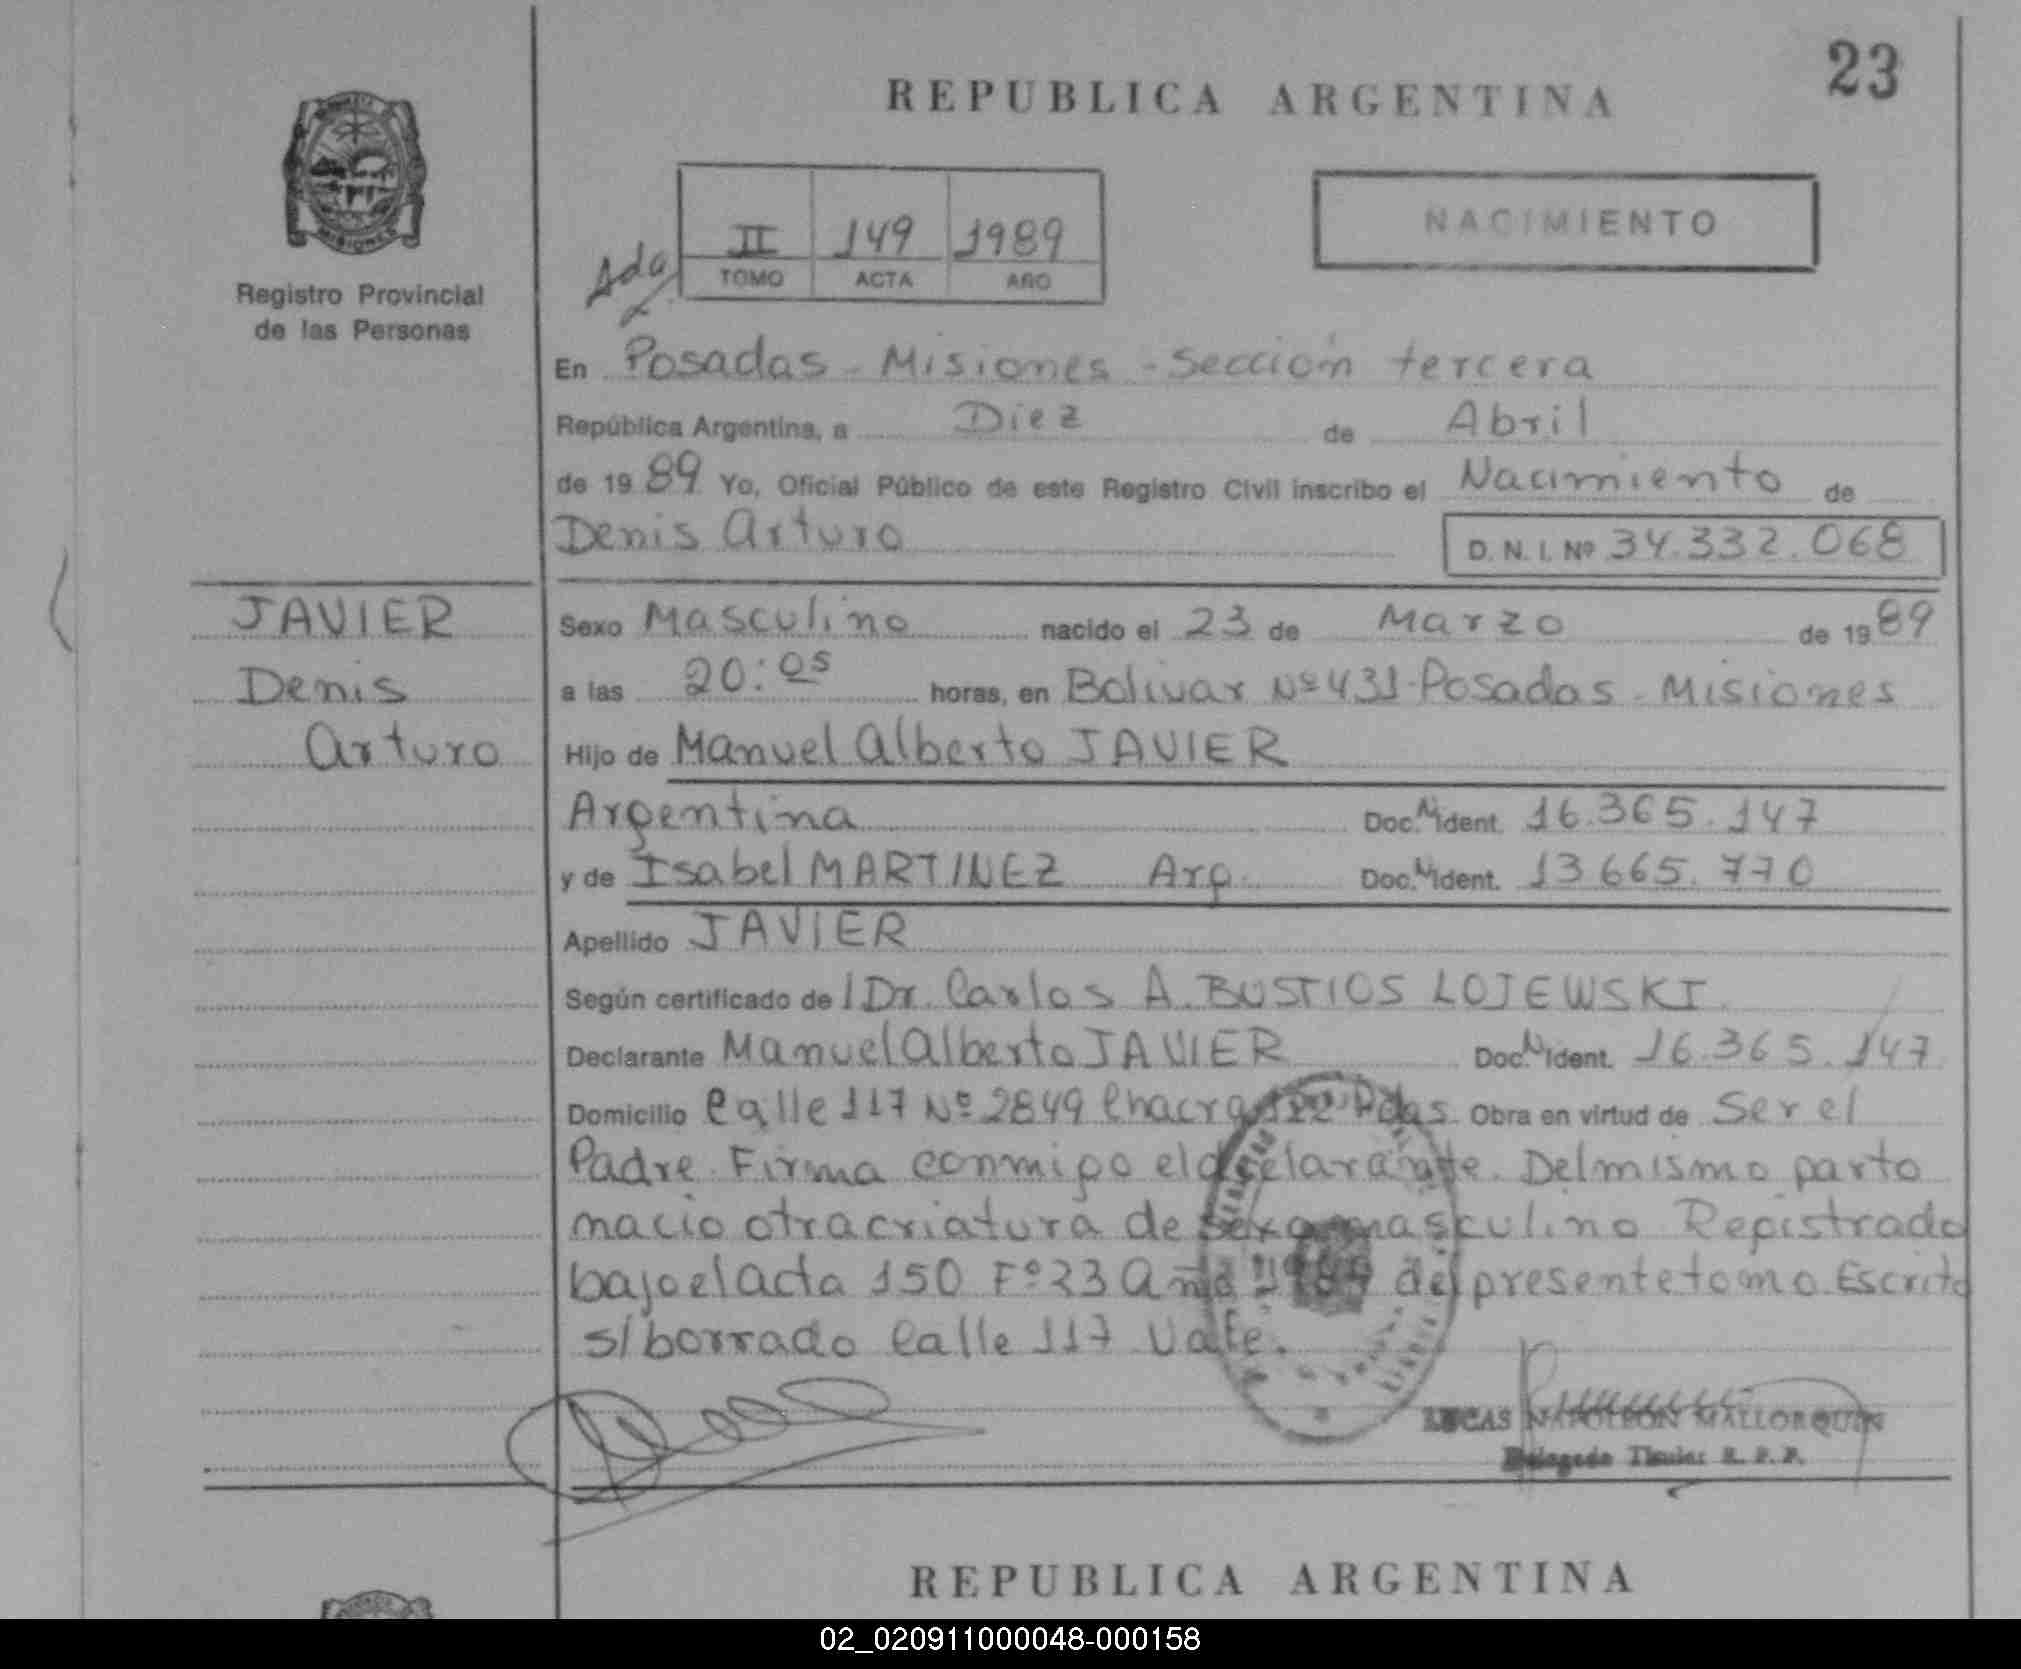 23
REPUBLICA ARGENTINA
MISIONES
Registro Provincial
de las Personas
II 149 1989
TOMO ACTA AÑO
NACIMIENTO
En Posadas - Misiones - Sección tercera
República Argentina, a Diez de Abril
de 19 89 Yo, Oficial Público de este Registro Civil inscribo el Nacimiento de
Denis Arturo D. N. I. Nº 34.332.068
JAVIER
Denis
Arturo
Sexo Masculino nacido el 23 de Marzo de 19 89
a las 20:05 horas, en Bolivar Nº 431-Posadas - Misiones
Hijo de Manuel Alberto JAVIER
Argentina Doc. N. Ident. 16.365.147
y de Isabel MARTINEZ Arg. Doc. N. Ident. 13.665.770
Apellido JAVIER
Según certificado de / Dr. Carlos A. BUSTIOS LOJEWSKI.
Declarante Manuel Alberto JAVIER Doc. N. Ident. 16.365.147
Domicilio Calle 117 Nº 2849 Chacra Pdas. Obra en virtud de Ser el
Padre. Firma conmigo el declarante. Del mismo parto
nacio otra criatura de sexo masculino Registrado
bajo el acta 150 Fº 23 Año 1989 del presente tomo. Escrito
s/borrado Calle 117 Vale.
LUCAS NAPOLEON MALLORQUIN
Delegado Titular R. P. P.
REPUBLICA ARGENTINA
02_020911000048-000158